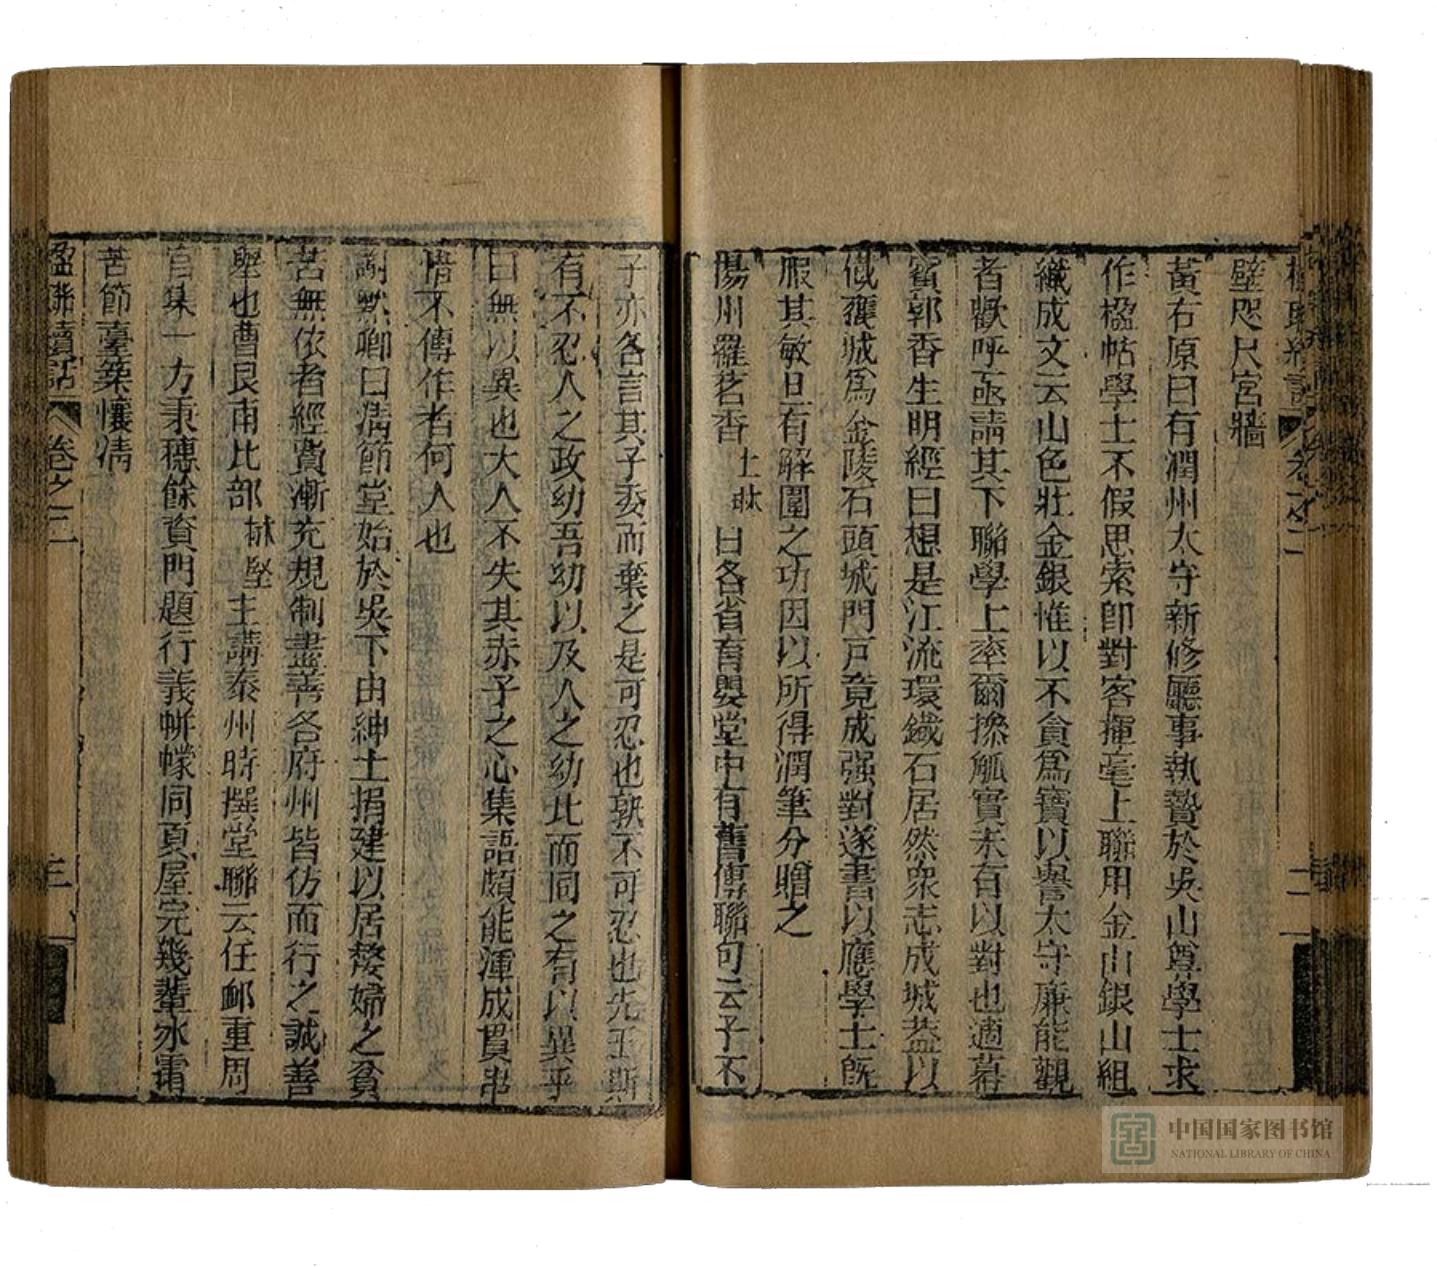 楹聯續話 卷之二 二
壁咫尺宮牆
黃右原曰有潤州太守新修廳事執贄於吳山尊學士求
作楹帖學士不假思索卽對客揮毫上聯用金山銀山組
織成文云山色壯金銀惟以不貪爲寶以譽太守廉能觀
者歡呼亟請其下聯學士率爾操觚實未有以對也適幕
賓郭香生明經曰想是江流環鐵石居然衆志成城葢以
甙甕城爲金陵石頭城門戸竟成强對遂書以應學士旣
服其敏且有解圍之功因以所得潤筆分贈之
陽州羅茗香士琳曰各省育嬰堂中有舊傳聯句云子不
子亦各言其子委而棄之是可忍也孰不可忍也先王斯
有不忍人之政幼吾幼以及人之幼比而同之有以異乎
曰無以異也大人不失其赤子之心集語頗能渾成貫串
惜不傳作者何人也
謝默卿曰淸節堂始於吳下由紳士捐建以居嫠婦之貧
苦無依者經費漸充規制盡善各府州皆仿而行之誠善
舉也曹艮甫比部楙堅主講泰州時撰堂聯云任邮重周
官集一方秉穗餘資門題行義帡幪同夏屋完幾輩冰霜
苦節臺築懷淸
楹聯續話 卷之二 三
中国国家图书馆
NATIONAL LIBRARY OF CHINA